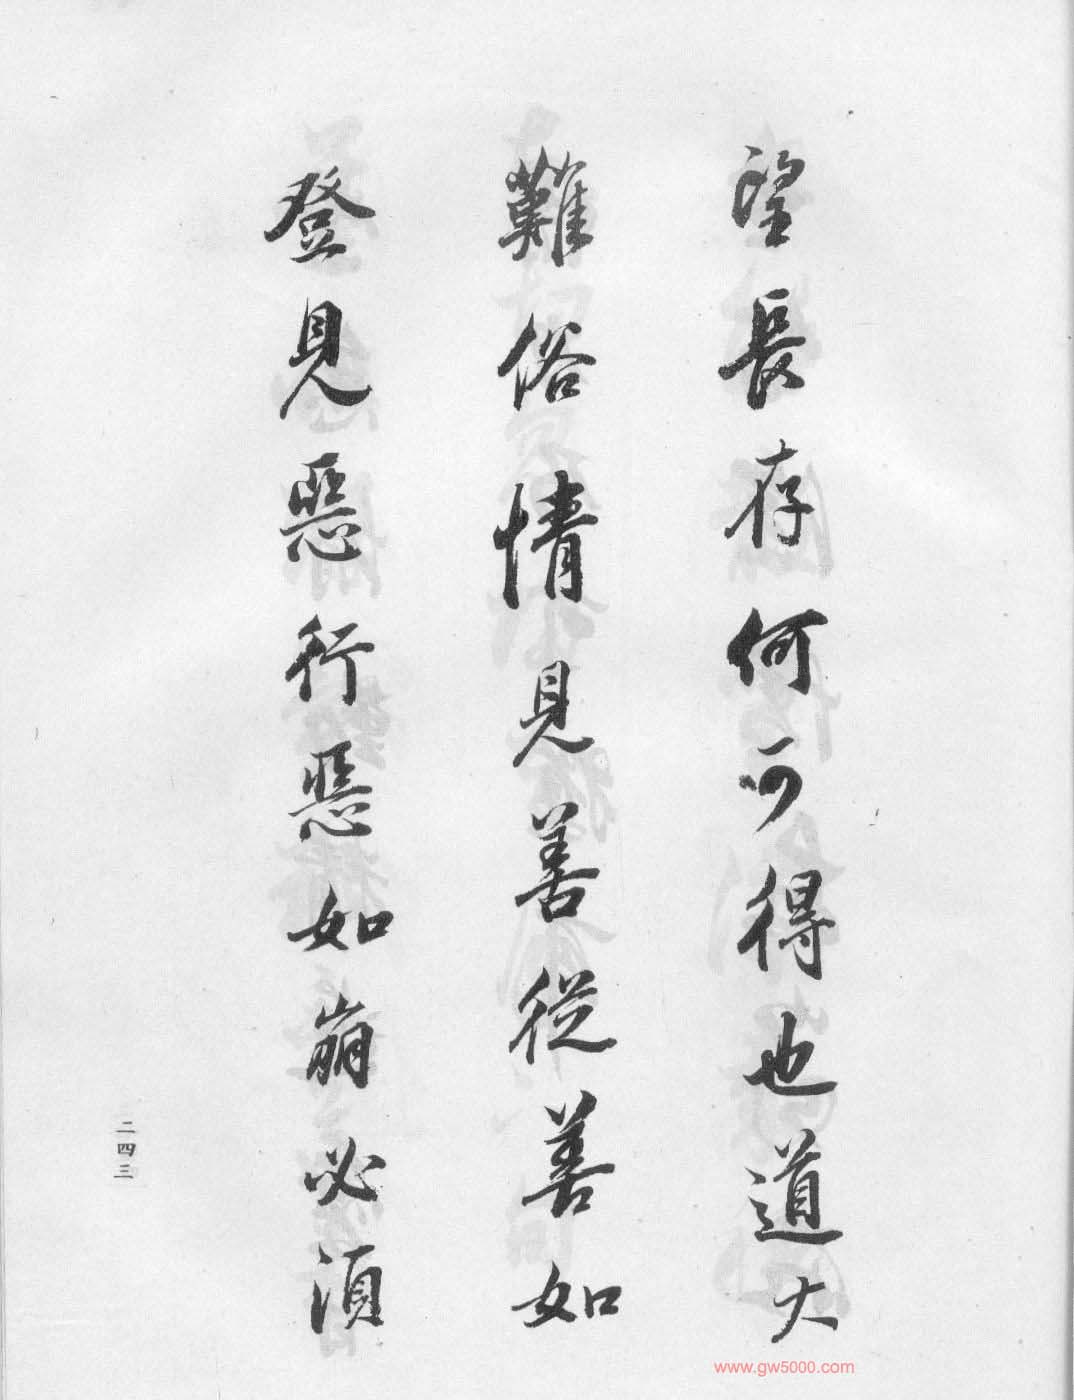 望長存何可得也道大
難俗情見善從善如
登見惡行惡如崩必須
二四三
www.gw5000.com